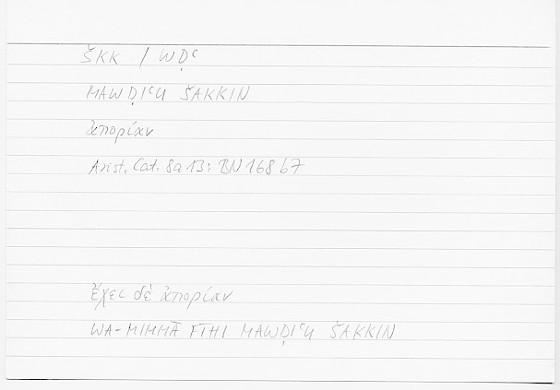 ŠKK / WḌʿ
MAWḌIʿU ŠAKKIN
ἀπορίαν
Arist. Cat. 8a13: BN 168 b7
Ἔχει δὲ ἀπορίαν
WA-MIMMĀ FĪHI MAWḌIʿU ŠAKKIN